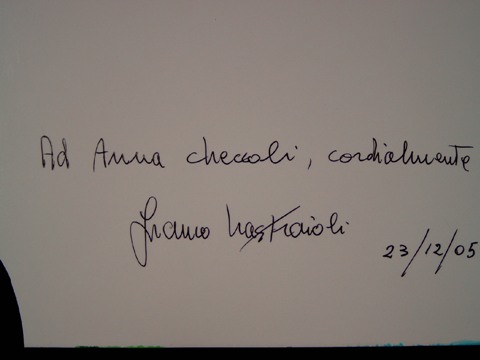 Ad Anna Checcoli, cordialmente
Franco Mastraioli
23/12/05